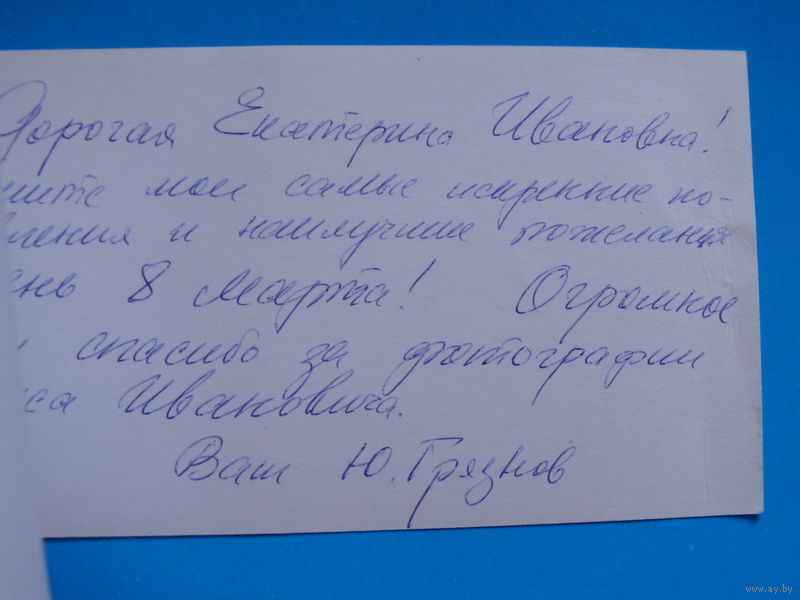 Дорогая Екатерина Ивановна!
мои самые искренние по-
и наилучшие пожелания
8 Марта! Огромное
спасибо за фотографии
Ивановича.
Ваш Ю. Грязнов
www.ay.by